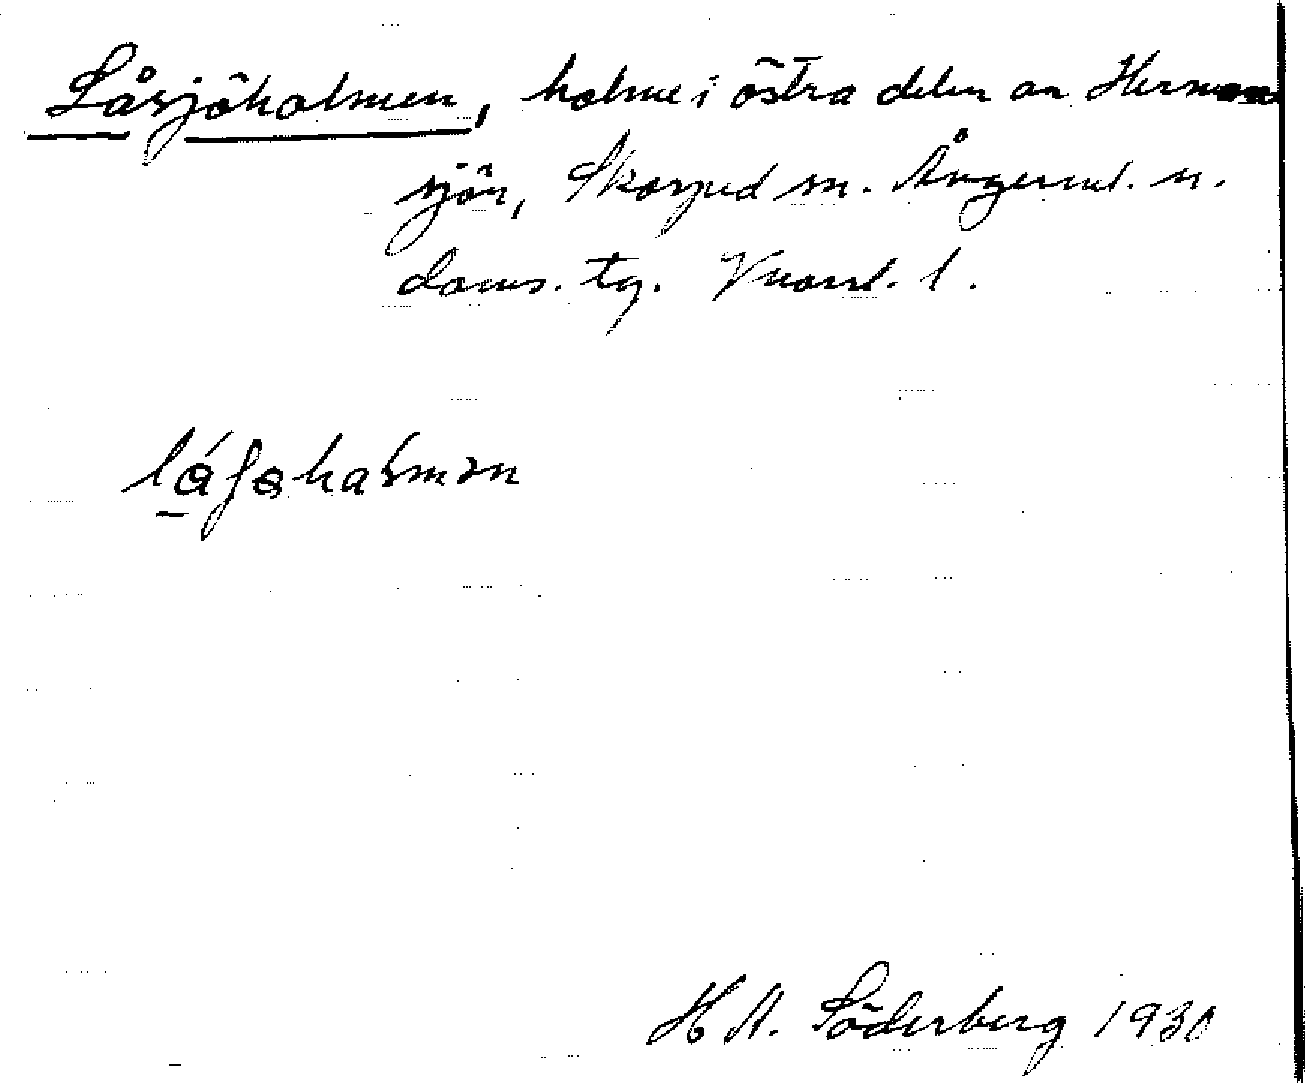 Låsjöholmen, holme i östra delen av Herman
sjön, Skorped sn. Ångerml. n.
doms. tg. Vnorrl. l.
H A. Söderberg 1930